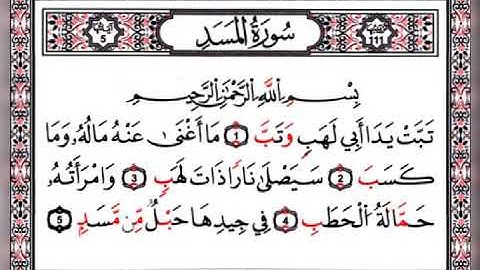 آياتها 5 سورة المسد 111
بِسْمِ اللَّهِ الرَّحْمَٰنِ الرَّحِيمِ
تَبَّتْ يَدَا أَبِي لَهَبٍ وَتَبَّ ۝1 مَا أَغْنَىٰ عَنْهُ مَالُهُ وَمَا
كَسَبَ ۝2 سَيَصْلَىٰ نَارًا ذَاتَ لَهَبٍ ۝3 وَامْرَأَتُهُ
حَمَّالَةَ الْحَطَبِ ۝4 فِي جِيدِهَا حَبْلٌ مِّن مَّسَدٍ ۝5